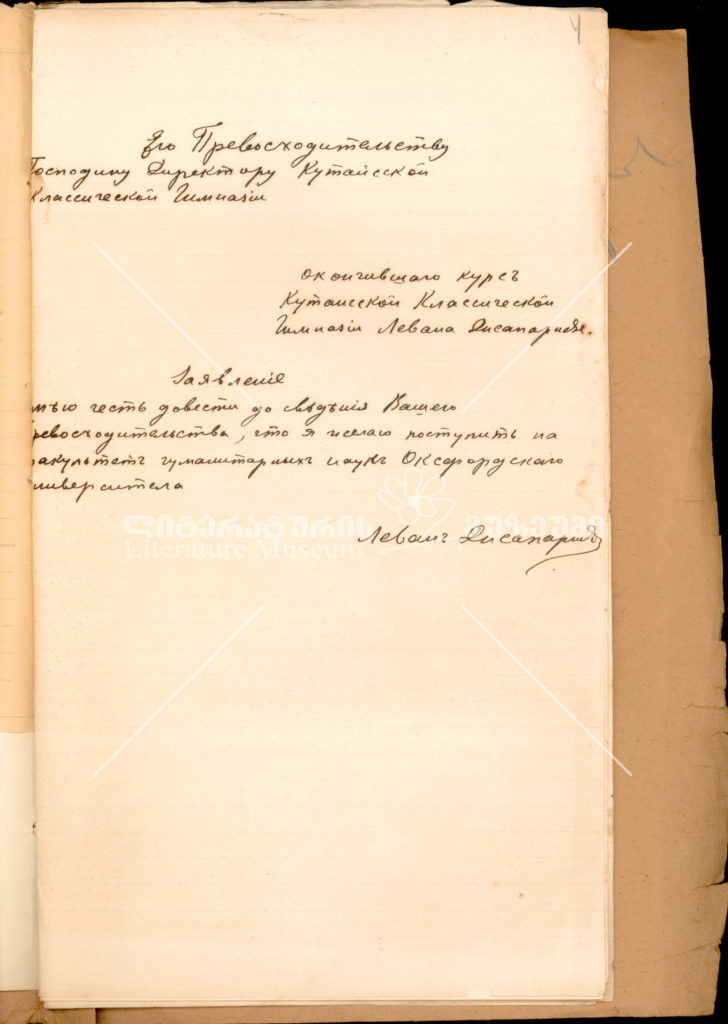 4
Его Превосходительству
Господину Директору Кутаисской
Классической Гимназіи
окончившаго курсъ
Кутаисской Классической
Гимназіи Левана Джапаридзе.
Заявленіе
мѣю честь довести до свѣдѣнія Вашего
ревосходительства, что я желаю поступить на
акультетъ гуманитарныхъ наукъ Оксфордскаго
ниверситета
ლიტერატურის მუზეუმი
Literature Museum
Леванъ Джапаридзе